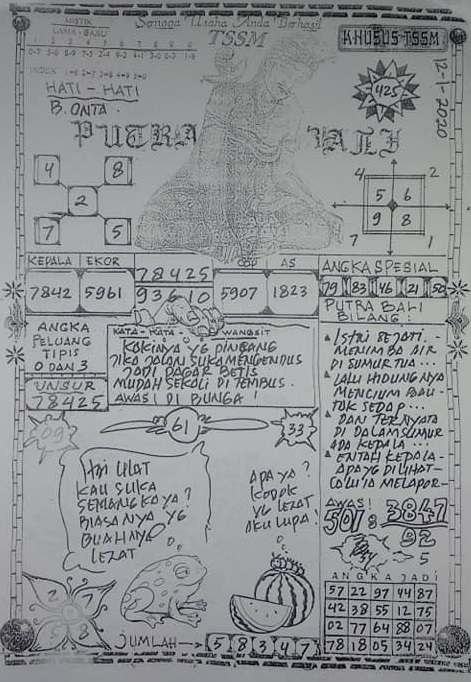 Semoga Usaha Anda Berhasil
TSSM
MISTIK
KHUSUS TSSM
12-1-2020
425
INDEX
HATI - HATI
B. ONTA
PUTRA BALI
4 8
2
7 5
4 2
5 6
9 8
7 1
KEPALA EKOR
7842 5961
78425
93610
COP AS
5907 1823
ANGKA SPESIAL
79 83 46 21 50
PUTRA BALI
BILANG :
ANGKA
PELUANG
TIPIS
0 DAN 3
UNSUR
78425
KATA - KATA WANGSIT
KAKINYA YG PINCANG
JIKA JALAN SUKA MENGENDUS
JADI PAGAR BETIS
MUDAH SEKALI DI TEMBUS.
AWAS! DI BUNGA!
ISTRI SEJATI..
MENIMBA AIR
DI SUMUR TUA...
LALU HIDUNGNYA
MENCIUM BAU
TAK SEDAP...
DAN TERNYATA
DI DALAM SUMUR
ADA KEPALA...
ENTAH KEPALA
APA YG DILIHAT
LALU IA MELAPOR
09
61
33
HAI ULAT
KAU SUKA
SEMANGKA YA?
BIASANYA YG
BUAHNYA
LEZAT
APA YA?
KODOK
YG LEZAT
AKU LUPA!
AWAS!
507 : 3847
92
5
2 7
5 8
JUMLAH 5 8 3 4 7
ANGKA JADI
57 22 97 44 87
42 38 55 12 75
02 77 64 88 07
78 18 05 34 24